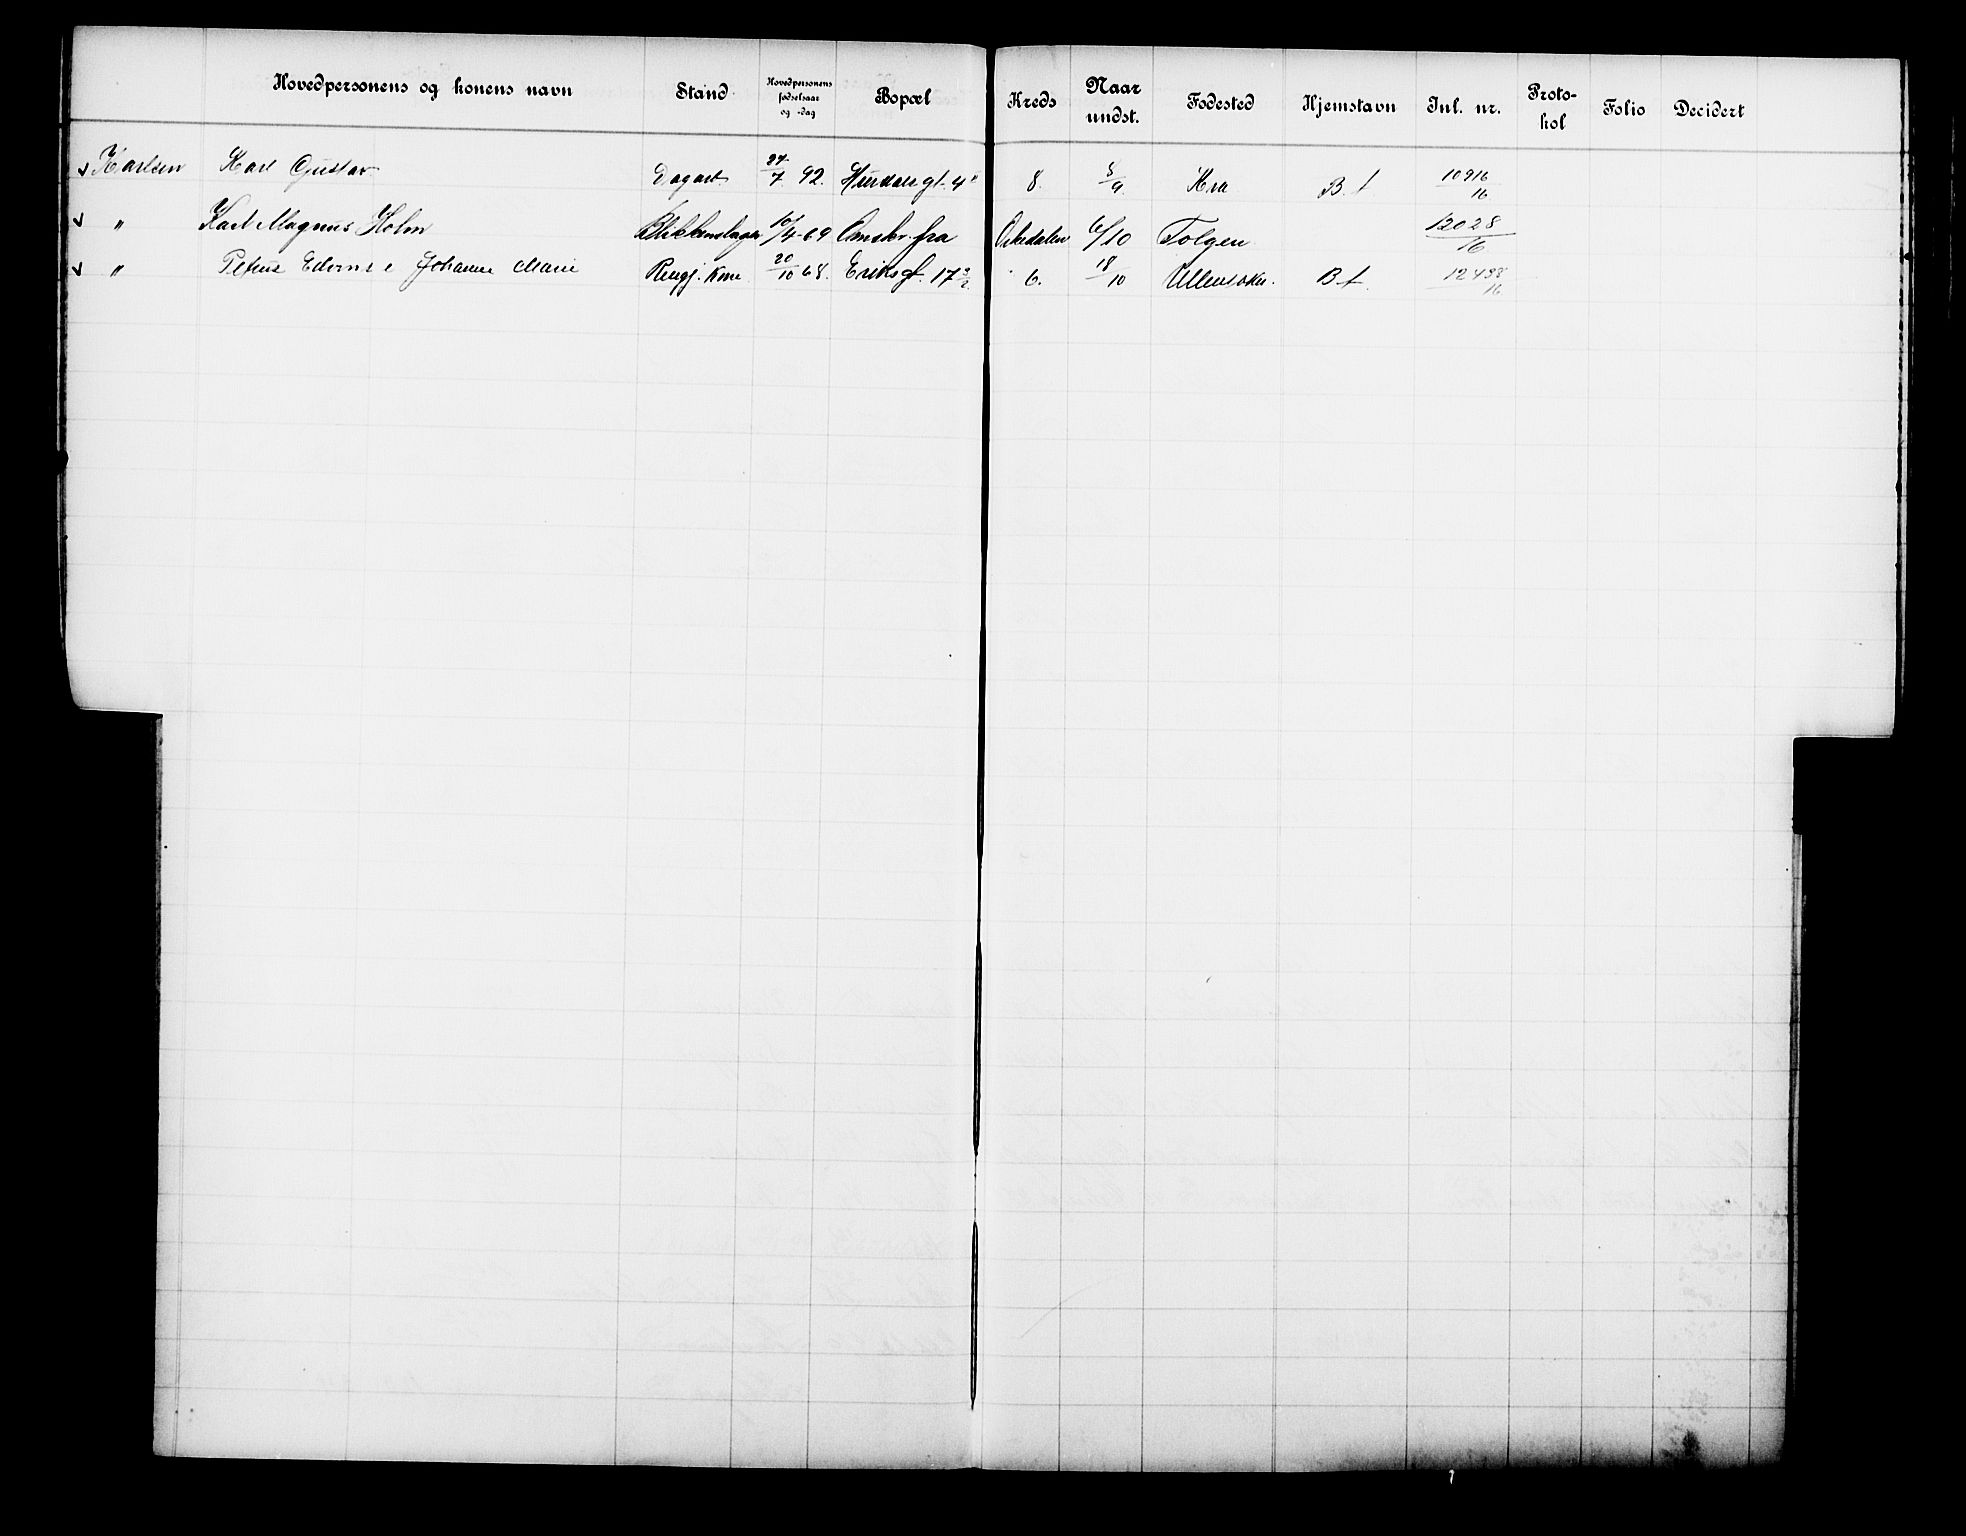 Hovedpersonens og konens navn Stand Hovedpersonens fødselsaar og -dag Bopæl Kreds Naar undst. Fødested Hjemstavn Jnl. nr. Proto-kol Folio Decidert
Karlsen Karl Gustav Dagarb 27/7 92. Hurdalsgt. 4" 8. 5/9. Kra B.t 10916/16
" Karl Magnus Holm Blikkenslager 10/4-69 Omskr. fra Orkedalen 6/10 Tolgen 12028/16
" Petrus Edv. e Johanne Marie Rengj. kone 20/10 68. Eriksgt. 17 6. 18/10 Ullensaker. B t. 12498/16